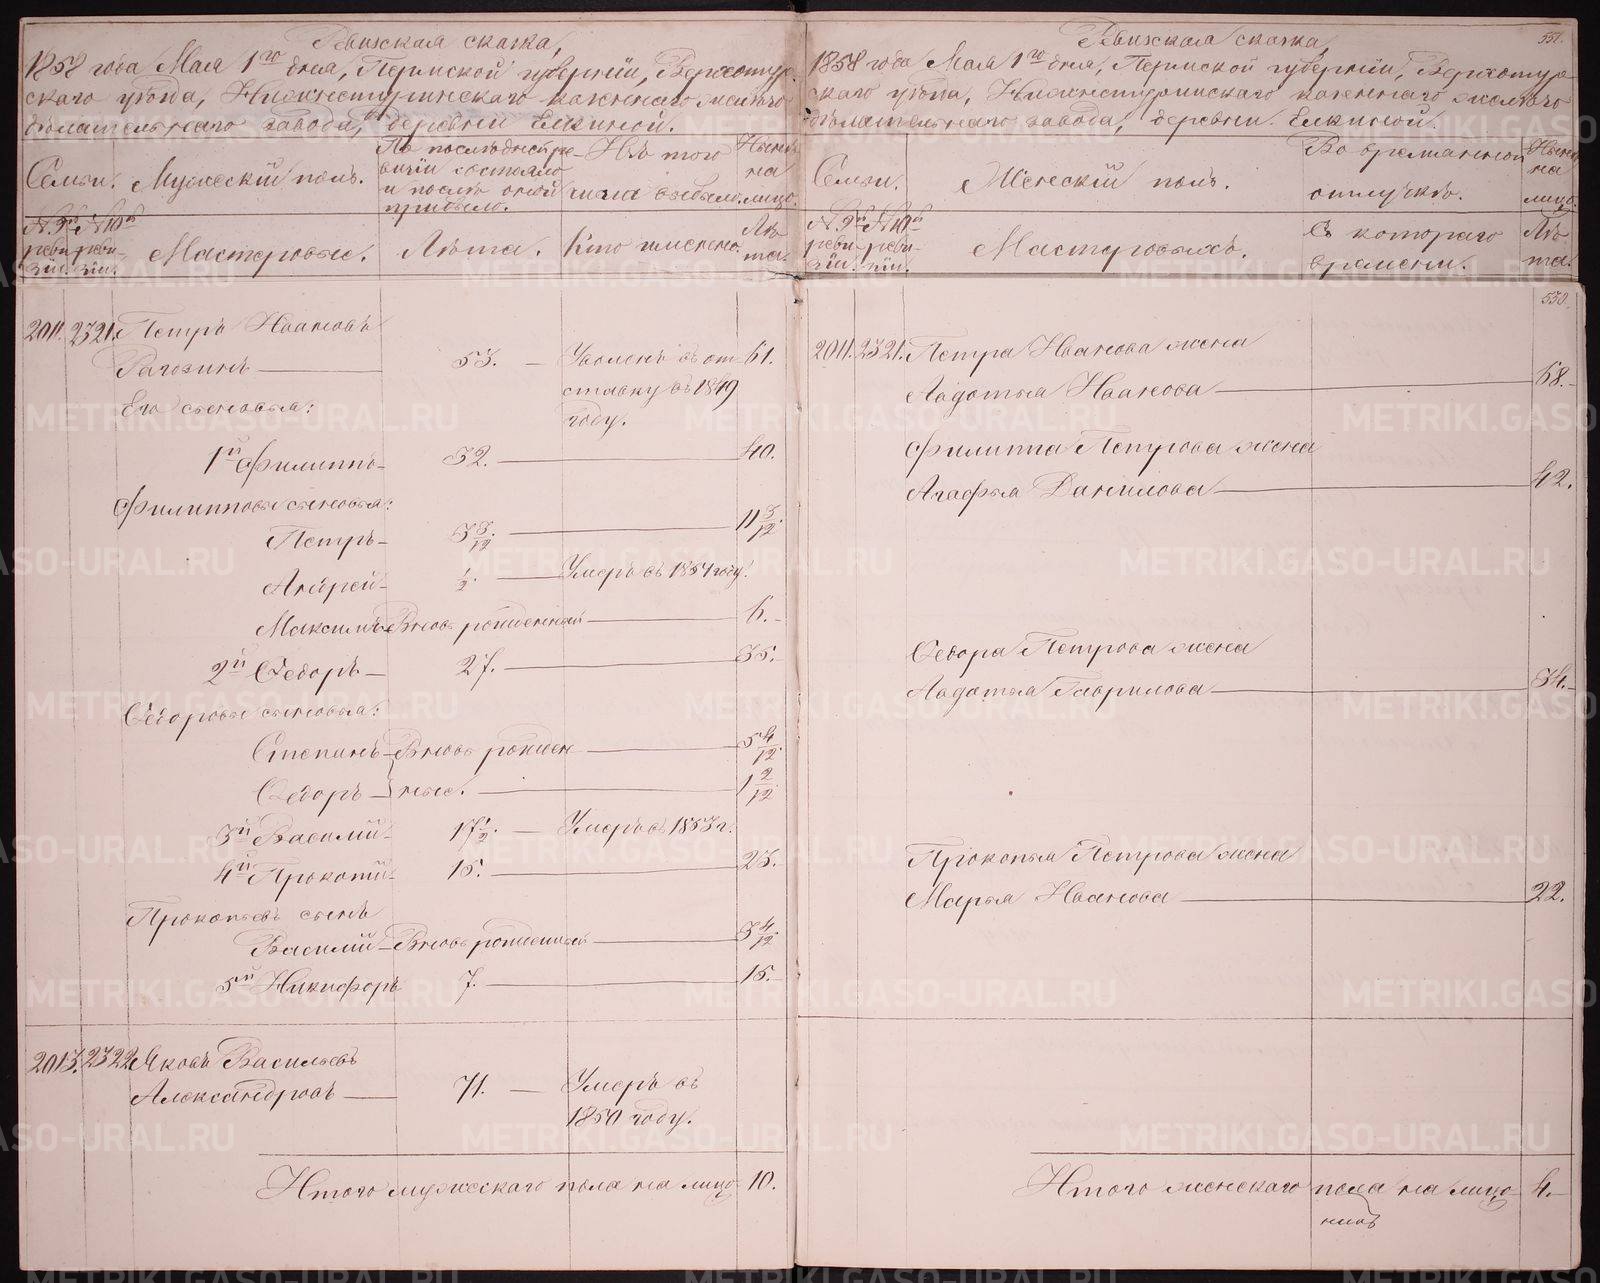 Ревизская сказка,
1858 года Мая 1го дня, Пермской губернии, Верхотур-
скаго уѣзда, Нижнетуринскаго казеннаго желѣзо-
дѣлательнаго завода, деревни Елкиной.
Семьи. Мужескій полъ. По послѣдней ре-
визіи состояло
и послѣ оной
прибыло. Изъ того
числа выбыло. Нынѣ
на
лицо.
№ 9й ревизіи. № 10й ревизіи. Мастеровые. Лѣта. Кто имянно. Лѣ-
та.
2011. 2321. Петръ Ивановъ
Рагозинъ 53. Уволенъ въ от- 61.
ставку въ 1849
году.
Его сыновья:
1й Филиппъ 32. 40.
Филипповы сыновья:
Петръ 3 3/12. 11 3/12.
Андрей 1/2. Умеръ въ 1854 году.
Максимъ Вновь рожденный 6.
2й Ѳедоръ 27. 35.
Ѳедоровы сыновья:
Степанъ Вновь рожден- 5 4/12.
Ѳедоръ ные. 1 2/12.
3й Василій 17 1/2. Умеръ въ 1853 г.
4й Прокопій 15. 23.
Прокопьевъ сынъ
Василій Вновь рожденный 3 4/12.
5й Никифоръ 7. 15.
2013. 2322. Яковъ Васильевъ
Александровъ 71. Умеръ въ
1850 году.
Итого мужескаго пола на лицо 10.
551.
Ревизская сказка,
1858 года Мая 1го дня, Пермской губерніи, Верхотур-
скаго уѣзда, Нижнетуринскаго казеннаго желѣзо-
дѣлательнаго завода, деревни Елкиной.
Семьи. Женскій полъ. Во временной
отлучкѣ. Нынѣ
на
лицо.
№ 9й ревизіи. № 10й ревизіи. Мастеровыхъ. Съ котораго
времени. Лѣ-
та.
550.
2011. 2321. Петра Иванова жена
Авдотья Иванова 68.
Филиппа Петрова жена
Агафья Данилова 42.
Ѳедора Петрова жена
Авдотья Гаврилова 34.
Прокопья Петрова жена
Марья Иванова 22.
Итого женскаго пола на лицо 4.
METRIKI.GASO-URAL.RU